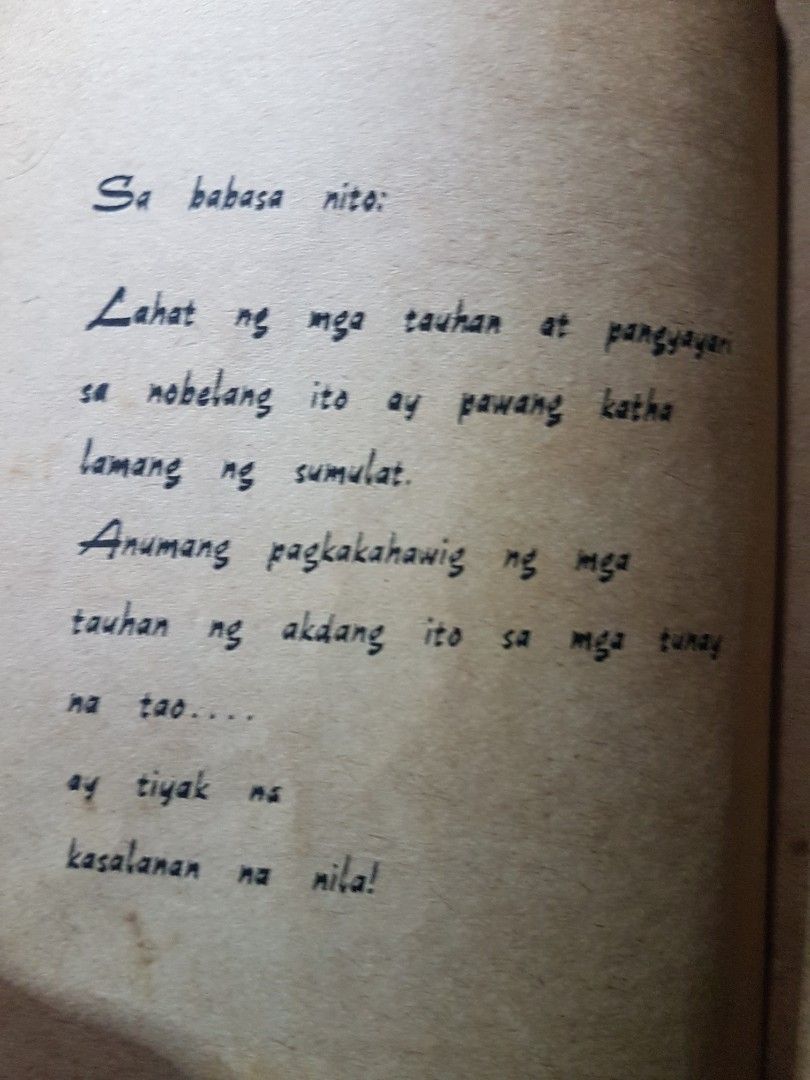 Sa babasa nito:
Lahat ng mga tauhan at pangyayari
sa nobelang ito ay pawang katha
lamang ng sumulat.
Anumang pagkakahawig ng mga
tauhan ng akdang ito sa mga tunay
na tao....
ay tiyak na
kasalanan na nila!